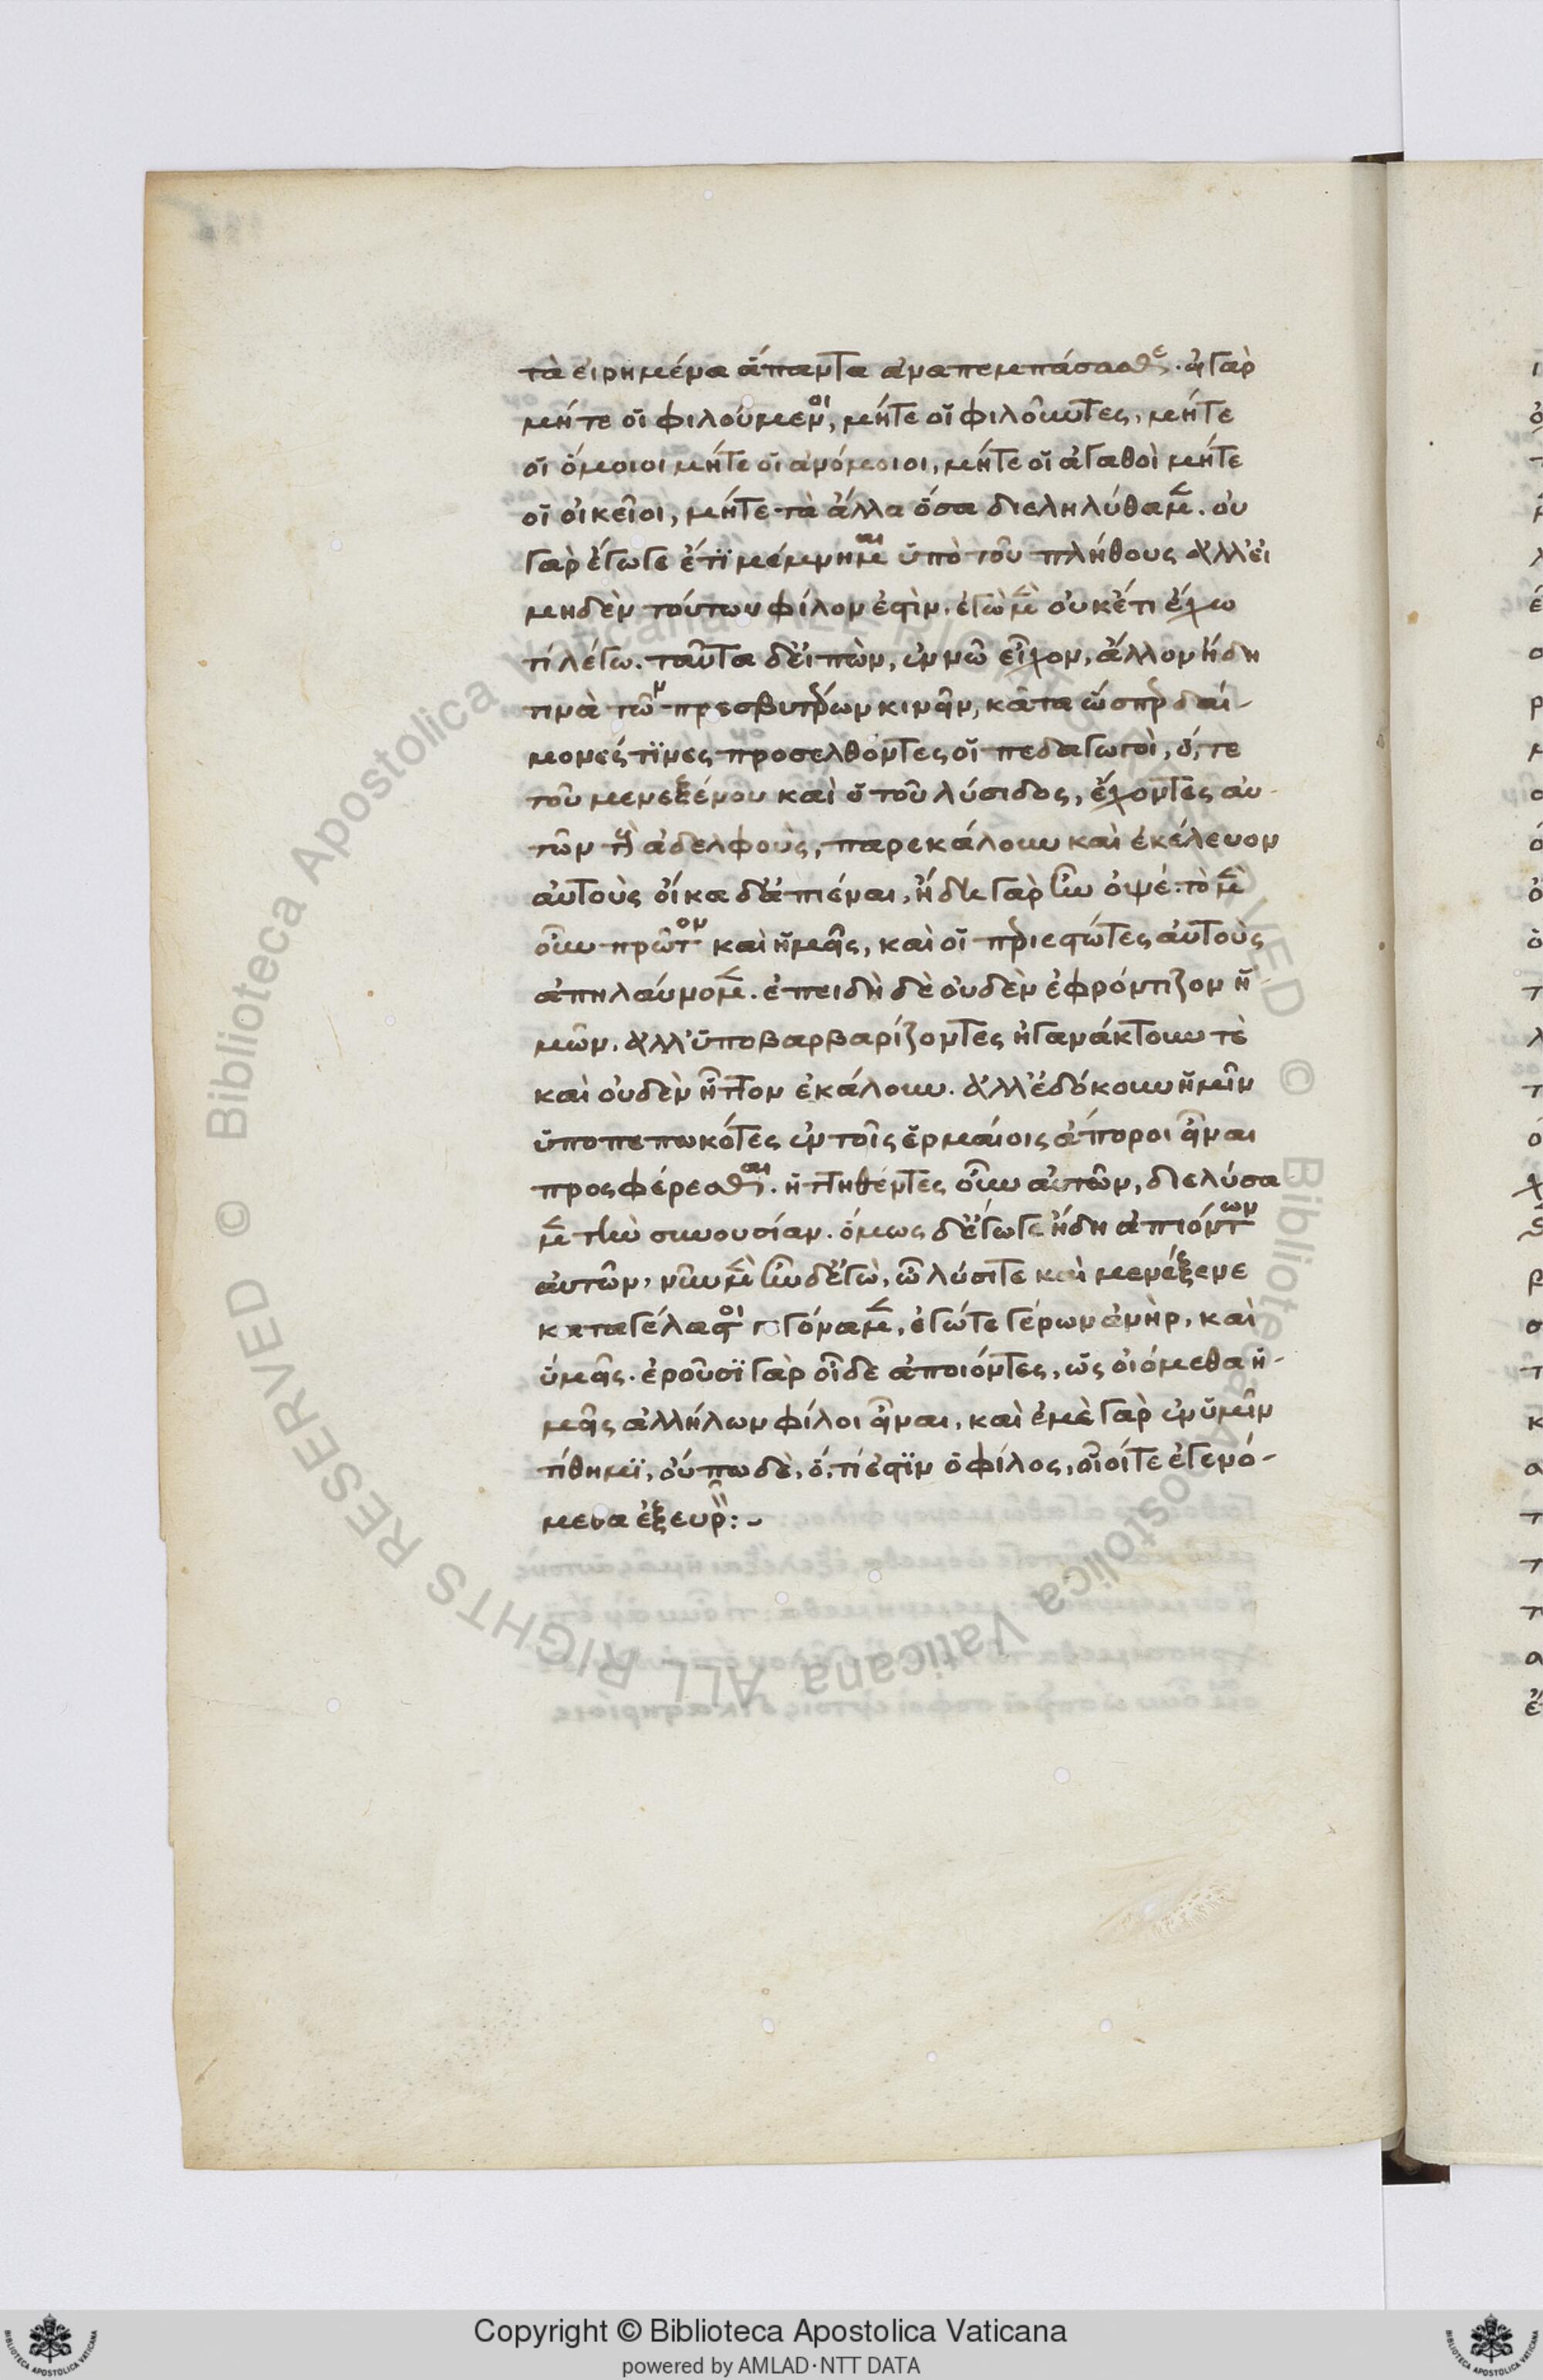 τὰ εἰρημένα ἅπαντα ἀναπεμπάσασθε. εἰ γὰρ
μήτε οἱ φιλούμενοι, μήτε οἱ φιλοῦντες, μήτε
οἱ ὅμοιοι μήτε οἱ ἀνόμοιοι, μήτε οἱ ἀγαθοὶ μήτε
οἱ οἰκεῖοι, μήτε τὰ ἄλλα ὅσα διεληλύθαμεν. οὐ
γὰρ ἔγωγε ἔτϊ μέμνημαι ὑπὸ τοῦ πλήθους ἀλλ' εἰ
μηδὲν τούτων φίλον ἐστὶν. ἐγὼ μὲν οὐκέτι ἔχω
τί λέγω. ταῦτα δ' εἰπὼν, ἐν νῶ εἶχον, ἄλλον ἤδη
τινὰ τῶν πρεσβυτέρων κινεῖν, κᾆτα ὥσπερ δαί-
μονές τϊνες προσελθόντες οἱ πεδαγωγοὶ, ὅ, τε
τοῦ μενεξένου καὶ ὁ τοῦ λύσιδος, ἔχοντες αὐ-
τῶν τοὺς ἀδελφοὺς, παρεκάλουν καὶ ἐκέλευον
αὐτοὺς οἴκαδ' ἀπιέναι, ἤδη γὰρ ἦν ὀψέ. τὸ μὲν
οὖν πρῶτον καὶ ἡμεῖς, καὶ οἱ περιεστῶτες αὐτοὺς
ἀπηλαύνομεν. ἐπειδὴ δὲ οὐδὲν ἐφρόντιζον ἡ-
μῶν. ἀλλ' ὑποβαρβαρίζοντες ἠγανάκτουν τὲ
καὶ οὐδὲν ἧττον ἐκάλουν. ἀλλ' ἐδόκουν ἡμῖν
ὑποπεπωκότες ἐν τοῖς ἑρμαίοις ἄποροι εἶναι
προσφέρεσθαι. ἡττηθέντες οὖν αὐτῶν, διελύσα
μεν τὴν συνουσίαν. ὅμως δ' ἔγωγε ἤδη ἀπιόντων
αὐτῶν, νῦν μὲν ἦν δ' ἐγὼ, ὦ λύσιτε καὶ μενέξενε
καταγέλαστοι γεγόναμεν, ἐγώτε γέρων ἀνὴρ, καὶ
ὑμεῖς. ἐροῦσϊ γὰρ οἵδε ἀποιόντες, ὡς οἰόμεθα ἡ-
μεῖς ἀλλήλων φίλοι εἶναι, καὶ ἐμὲ γὰρ ἐν ὑμῖν
τίθημϊ, οὔπω δὲ, ὅ, τί ἐστϊν ὁ φίλος, οἷοίτε ἐγενό-
μεθα ἐξευρεῖν:~
Copyright © Biblioteca Apostolica Vaticana
powered by AMLAD·NTT DATA